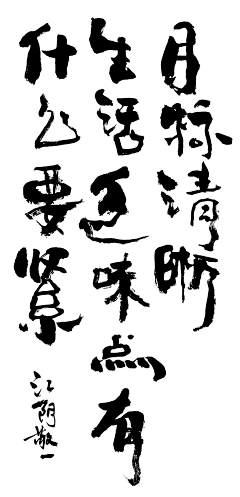 目標清晰
生活乏味点有
什么要紧
江阴敬一